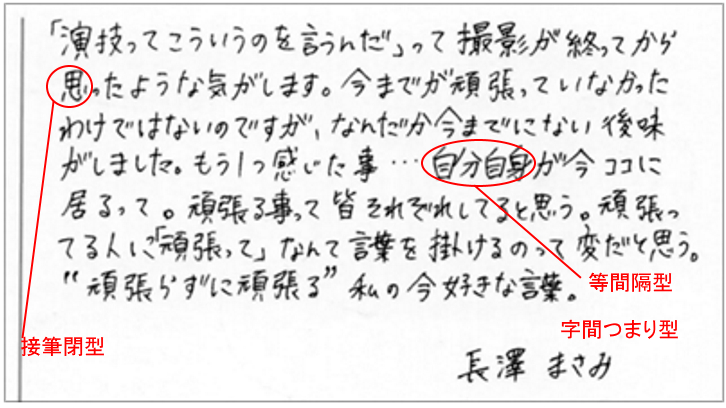 「演技ってこういうのを言うんだ」って撮影が終ってから
思ったような気がします。今までが頑張っていなかった
わけではないのですが、なんだか今までにない後味
がしました。もう1つ感じた事…自分自身が今ココに
居るって。頑張る事って皆それぞれしてると思う。頑張っ
てる人に「頑張って」なんて言葉を掛けるのって変だと思う。
“頑張らずに頑張る”私の今好きな言葉。
等間隔型
字間つまり型
接筆閉型
長澤まさみ